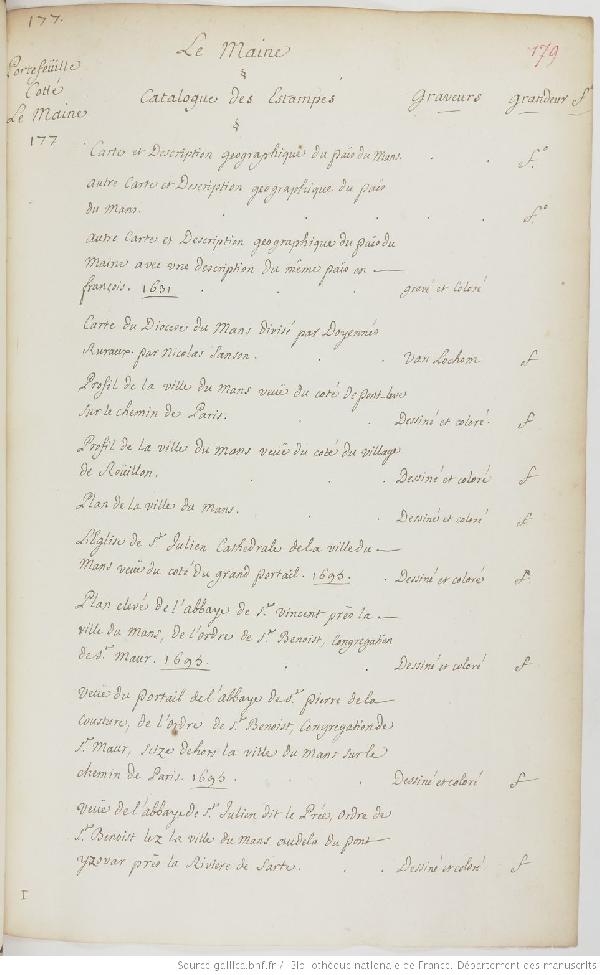 177.
Le Maine
179
Portefeüille
Cotté
Le Maine
177
Catalogue des Estampes Graveurs grandeur f.^t
Carte et Description geographique du païs du Mans. . . f.^o
autre Carte et Description geographique du païs
du Mans. . . . . . f.^o
autre Carte et Description geographique du païs du
Maine avec une description du même païs en —
françois. 1631 . . . gravé et Coloré
Carte du Diocese du Mans divisé par Doyennés
Ruraux. par Nicolas Sanson. . . Van Lochom. f
Profil de la ville du Mans veüe du coté de pont-lieve
sur le chemin de Paris. . . Dessiné et coloré. f
Profil de la ville du mans veuë du coté du village
de Roüillon. . . . Dessiné et coloré f
Plan de la ville du Mans. . . Dessiné et coloré f
L'Eglise de S.^t Julien Cathedrale de la ville du —
Mans veüe du coté du grand portail. 1695. . Dessiné et coloré f
Plan elevé de l'abbaye de S.^t Vincent près la —
ville du Mans, de l'ordre de S.^t Benoist, Congregation
de S.^t Maur. 1695. . . Dessiné et coloré f
Veüe du portail de l'abbaye de S.^t pierre de la —
Cousture, de l'ordre de S.^t Benoist, Congregation de
S.^t Maur, scize dehors la ville du Mans sur le
chemin de Paris. 1695. . . Dessiné et coloré f
Veüe de l'abbaye de S.^t Julien dit le Prée, ordre de
S.^t Benoist lez la ville du Mans audela du pont
yzovar près la Riviere de Sarte. . . Dessiné et coloré f
I
Source gallica.bnf.fr / Bibliothèque nationale de France. Département des manuscrits